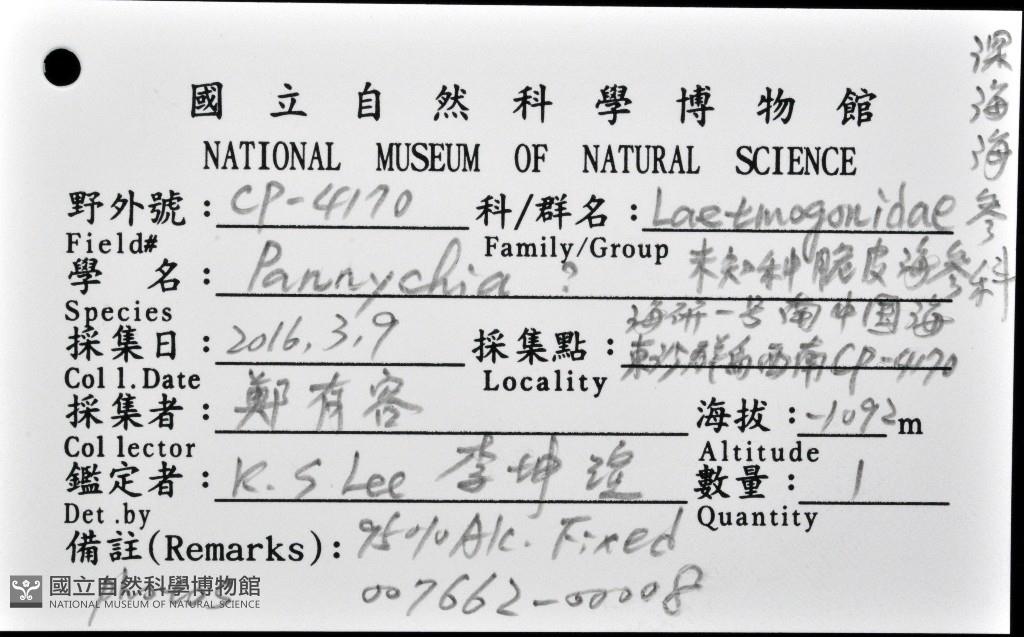 國立自然科學博物館
NATIONAL MUSEUM OF NATURAL SCIENCE
野外號：CP-4170 科/群名：Laetmogonidae
Field# Family/Group 未知科 脆皮海參科
深海海參
學 名：Pannychia ?
Species 海研一号南中国海
採集日：2016,3,9 採集點：東沙群島西南CP-4170
Coll.Date Locality
採集者：鄭有容 海拔：-1092m
Collector Altitude
鑑定者：K.S.Lee 李坤瑄 數量：1
Det.by Quantity
備註(Remarks)：95% Alc. Fixed
photos 007662-00008
國立自然科學博物館
NATIONAL MUSEUM OF NATURAL SCIENCE